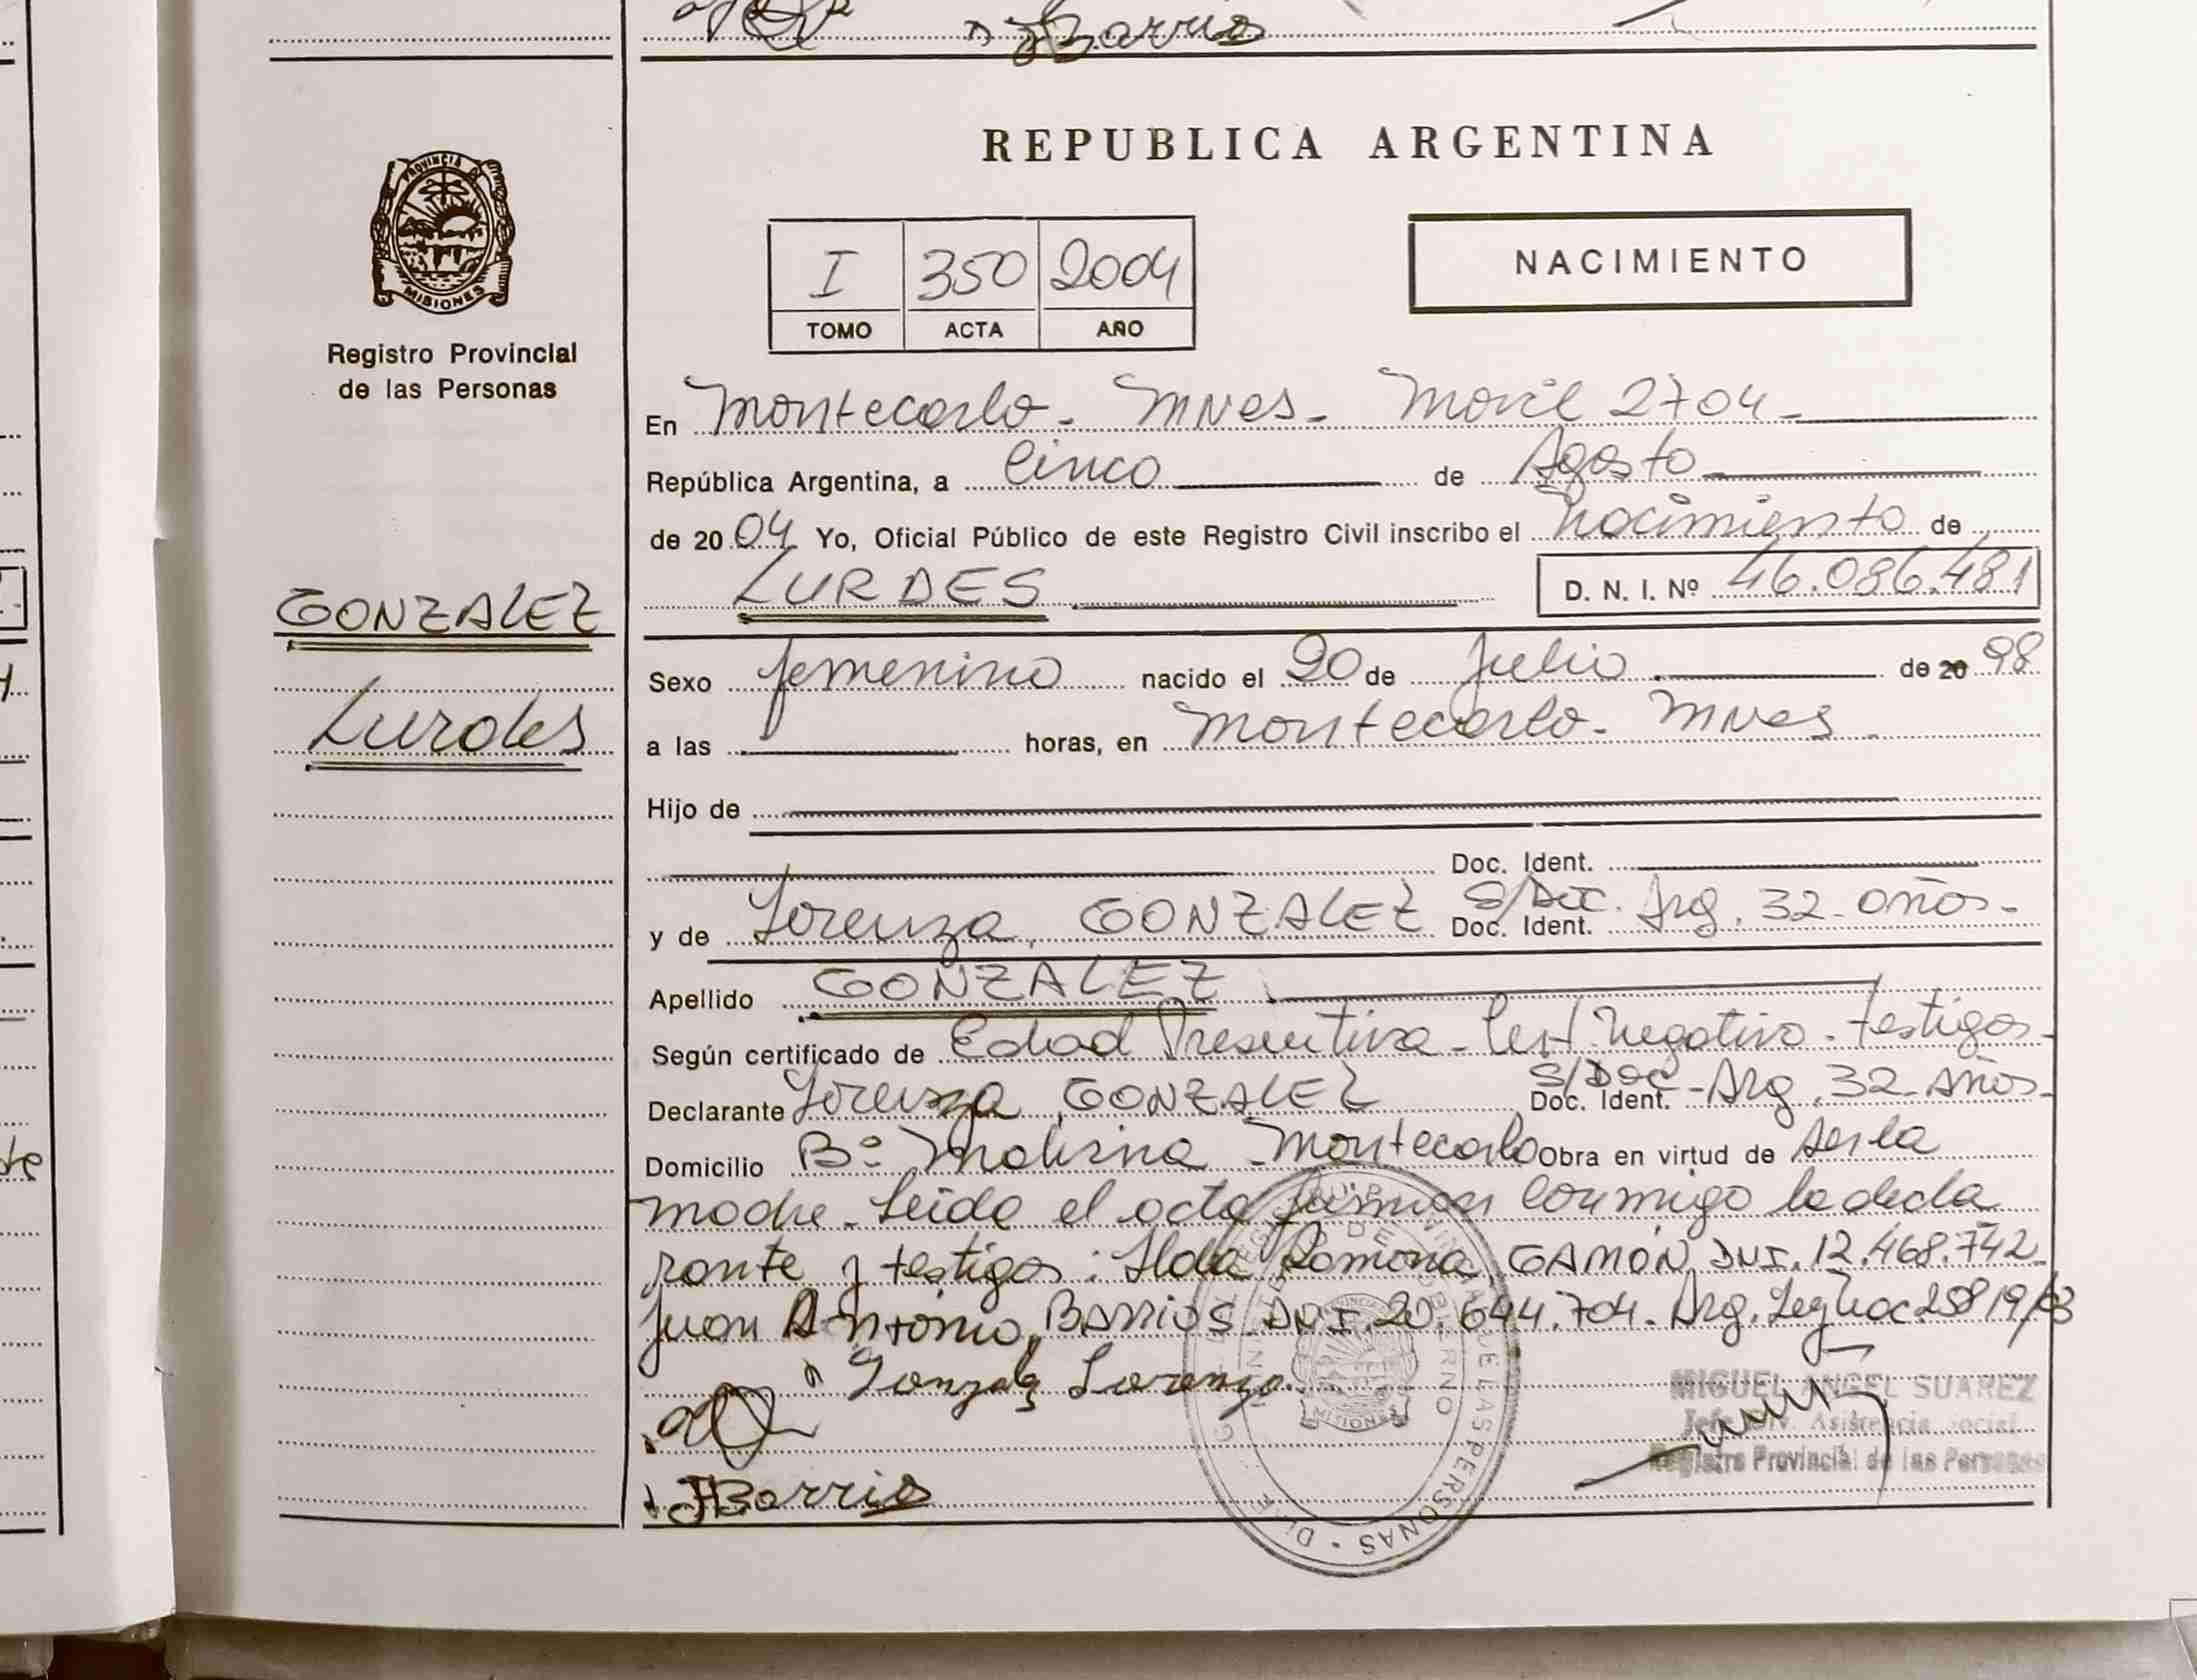 Barrios
REPUBLICA ARGENTINA
PROVINCIA DE
MISIONES
Registro Provincial
de las Personas
I 350 2004
TOMO ACTA AÑO
NACIMIENTO
En Montecarlo - Mnes - Movil 2704 -
República Argentina, a Cinco de Agosto
de 2004 Yo, Oficial Público de este Registro Civil inscribo el nacimiento de
LURDES D. N. I. Nº 46.086.481
GONZALEZ
Lurdes
Sexo femenino nacido el 20 de Julio de 20 98
a las horas, en Montecarlo - Mnes
Hijo de
Doc. Ident.
y de Lorenza, GONZALEZ Doc. Ident. S/Doc. Arg. 32 años -
Apellido GONZALEZ
Según certificado de Edad Presuntiva - Cert Negativo - testigos -
Declarante Lorenza, GONZALEZ Doc. Ident. S/Doc - Arg. 32 Años -
Domicilio Bº Molino - Montecarlo Obra en virtud de ser la
madre - Leida el acta firman conmigo la decla
rante y testigos: Ilda Ramona, GAMON, DNI. 12.468.742
Juan Antonio, BARRIOS DNI. 20.644.704. Arg.
Gonzalez Lorenza
JBarrios
MIGUEL ANGEL SUAREZ
Jefe Div. Asistencia Social
Registro Provincial de las Personas
MISIONES